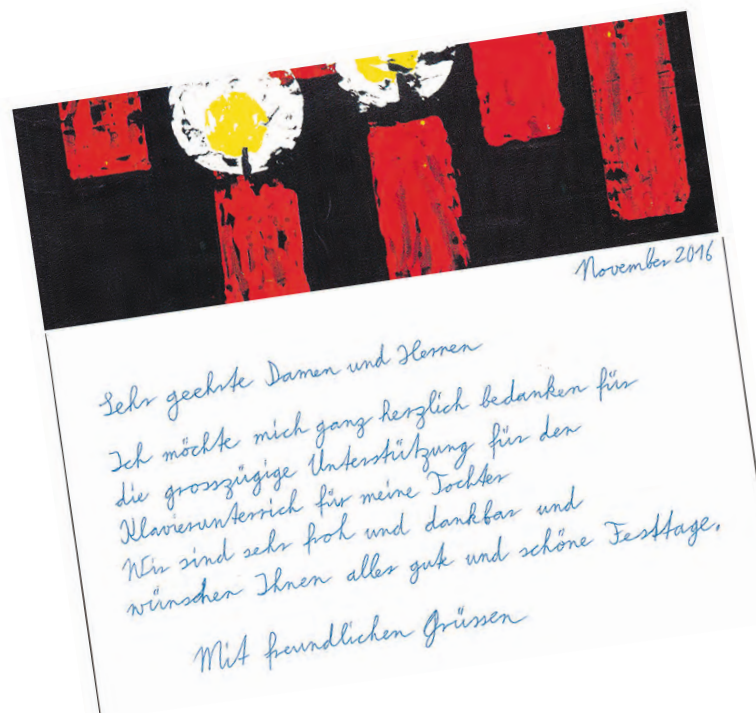 November 2016
Sehr geehrte Damen und Herren
Ich möchte mich ganz herzlich bedanken für
die grosszügige Unterstützung für den
Klavierunterrich für meine Tochter
Wir sind sehr froh und dankbar und
wünschen Ihnen alles gute und schöne Festtage.
Mit freundlichen Grüssen